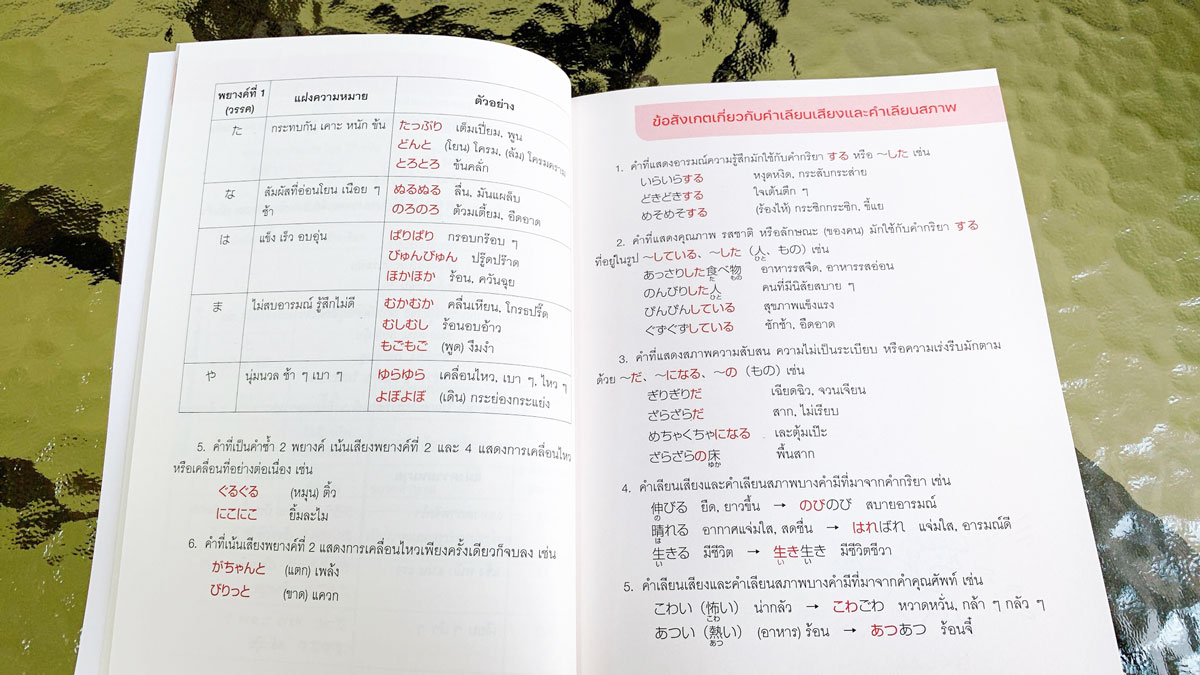 พยางค์ที่ 1 (วรรค) แฝงความหมาย ตัวอย่าง
た กระทบกัน เคาะ หนัก ข้น たっぷり เต็มเปี่ยม, พูน
どんと (โยน) โครม, (ล้ม) โครมคราม
とろとろ ข้นคลั่ก
な สัมผัสที่อ่อนโยน เนือย ๆ ช้า ぬるぬる ลื่น, มันแผล็บ
のろのろ ต้วมเตี้ยม, อืดอาด
は แข็ง เร็ว อบอุ่น ぱりぱり กรอบกร๊อบ ๆ
びゅんびゅん ปรู๊ดปร๊าด
ほかほか ร้อน, ควันฉุย
ま ไม่สบอารมณ์ รู้สึกไม่ดี むかむか คลื่นเหียน, โกรธปรี๊ด
むしむし ร้อนอบอ้าว
もごもご (พูด) งึมงำ
や นุ่มนวล ช้า ๆ เบา ๆ ゆらゆら เคลื่อนไหว, เบา ๆ, ไหว ๆ
よぼよぼ (เดิน) กระย่องกระแย่ง
5. คำที่เป็นคำซ้ำ 2 พยางค์ เน้นเสียงพยางค์ที่ 2 และ 4 แสดงการเคลื่อนไหว
หรือเคลื่อนที่อย่างต่อเนื่อง เช่น
ぐるぐる (หมุน) ติ้ว
にこにこ ยิ้มละไม
6. คำที่เน้นเสียงพยางค์ที่ 2 แสดงการเคลื่อนไหวเพียงครั้งเดียวก็จบลง เช่น
がちゃんと (แตก) เพล้ง
びりっと (ขาด) แควก
ข้อสังเกตเกี่ยวกับคำเลียนเสียงและคำเลียนสภาพ
1. คำที่แสดงอารมณ์ความรู้สึกมักใช้กับคำกริยา する หรือ ～した เช่น
いらいらする หงุดหงิด, กระสับกระส่าย
どきどきする ใจเต้นตึก ๆ
めそめそする (ร้องไห้) กระซิกกระซิก, ขี้แย
2. คำที่แสดงคุณภาพ รสชาติ หรือลักษณะ (ของคน) มักใช้กับคำกริยา する
ที่อยู่ในรูป ～している、～した（人、もの）เช่น
ひと
あっさりした食べ物 อาหารรสจืด, อาหารรสอ่อน
た もの
のんびりした人 คนที่มีนิสัยสบาย ๆ
ひと
ぴんぴんしている สุขภาพแข็งแรง
ぐずぐずしている ชักช้า, อืดอาด
3. คำที่แสดงสภาพความสับสน ความไม่เป็นระเบียบ หรือความเร่งรีบมักตาม
ด้วย ～だ、～になる、～の（もの）เช่น
ぎりぎりだ เฉียดฉิว, จวนเจียน
ざらざらだ สาก, ไม่เรียบ
めちゃくちゃになる เละตุ้มเป๊ะ
ざらざらの床 พื้นสาก
ゆか
4. คำเลียนเสียงและคำเลียนสภาพบางคำมีที่มาจากคำกริยา เช่น
伸びる ยืด, ยาวขึ้น → のびのび สบายอารมณ์
の
晴れる อากาศแจ่มใส, สดชื่น → はればれ แจ่มใส, อารมณ์ดี
は
生きる มีชีวิต → 生き生き มีชีวิตชีวา
い い い
5. คำเลียนเสียงและคำเลียนสภาพบางคำมีที่มาจากคำคุณศัพท์ เช่น
こわい（怖い）น่ากลัว → こわごわ หวาดหวั่น, กล้า ๆ กลัว ๆ
こわ
あつい（熱い）(อาหาร) ร้อน → あつあつ ร้อนจี๋
あつ